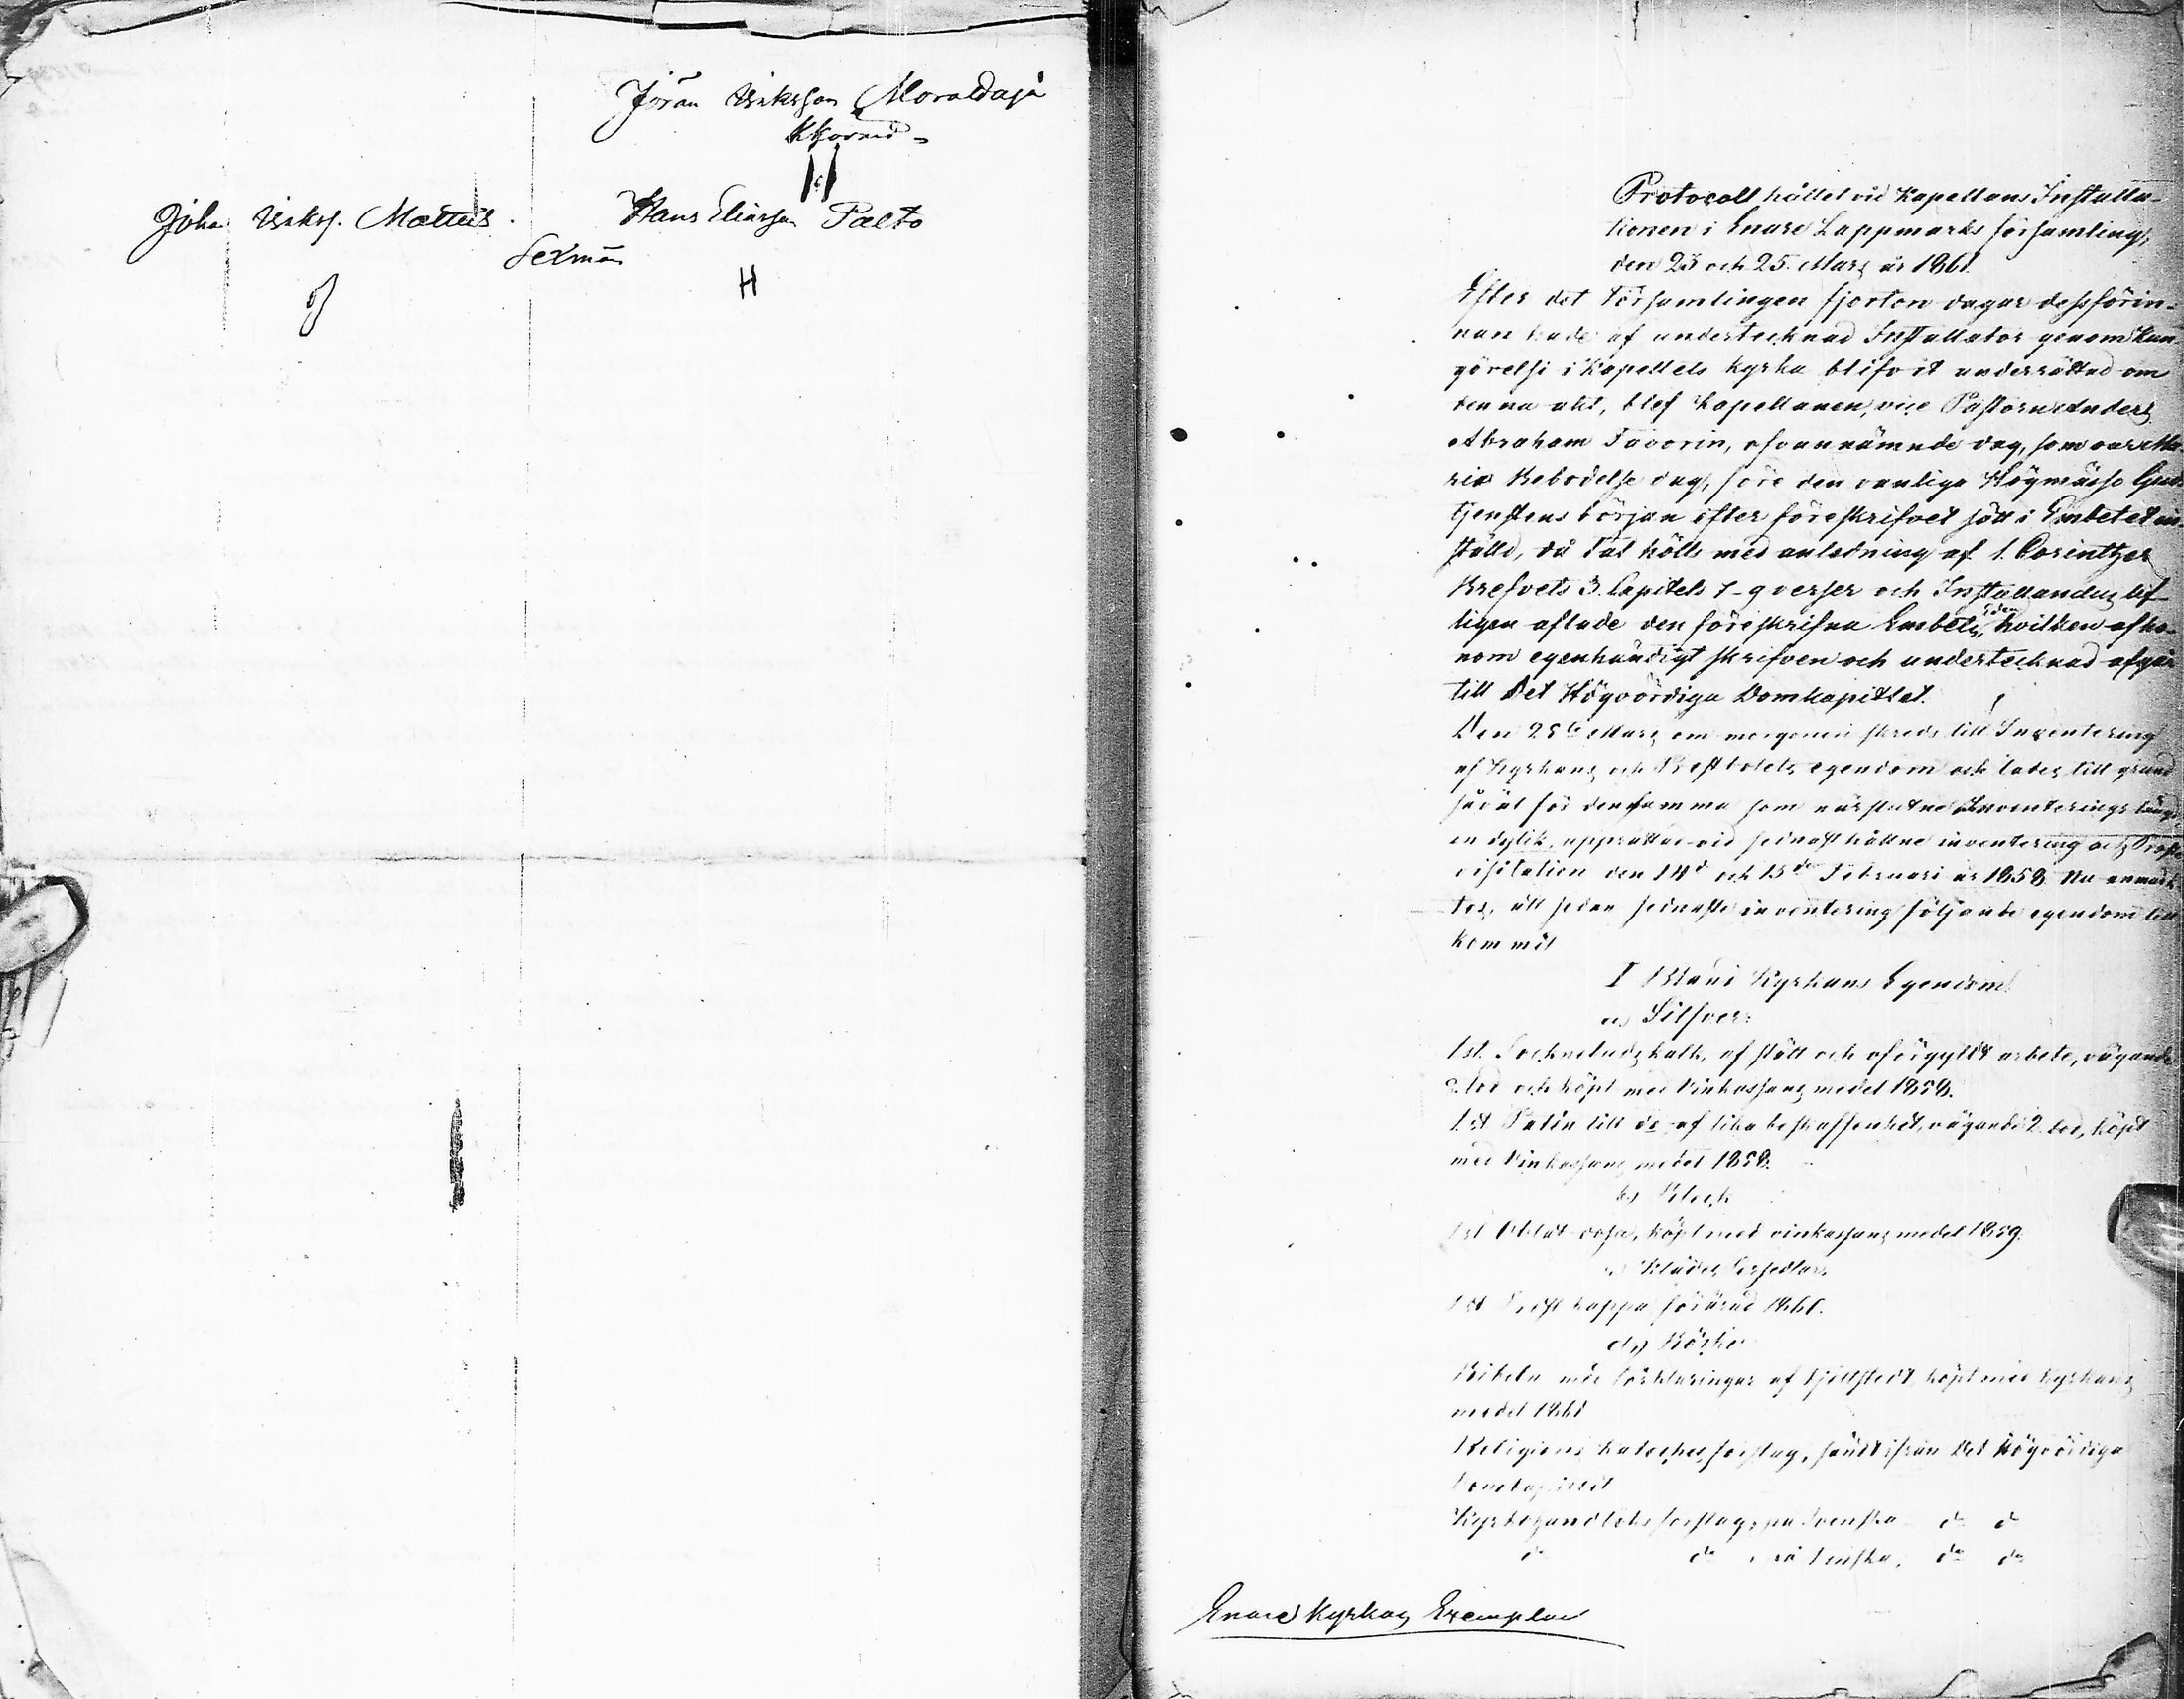 Jöran Eriksson Morottaja
Kkovärd
Joha Eriks. Mattus
Hans Eliasson Palto
Sexman
H
Protocoll hållet vid Kapellans Installa-
tionen i Enare Lappmarks församling,
den 23 och 25. Mars år 1861.
Efter det Församlingen fjorton dagar dessförin-
nan hade af undertecknad Installator genom kun
görelse i Kapellets kyrka blifvit underrättad om
denna akt, blef Kapellanen, vice Pastorn Anders
Abraham Favorin, ofvannämnde dag, som var Ma
riæ Bebodelse dag, före den vanliga Högmässo Guds
tjenstens början efter föreskrifvet sätt i Embetet in
ställd, då Tal hölls med anledning af 1. Corinther
Brefvets 3. Capitels 7-9 verser och Installandus lif
ligen aflade den föreskrifna Embets eden, hvilken af ho-
nom egenhändigt skrifven och undertecknad afgår
till Det Högvördiga Domkapitlet.
Den 25te Mars om morgonen skreds till Inventering
af Kyrkans och Prestbolets egendom och lades till grund
såväl för densamma som närslutne Inventerings läng
en dylik, upprättad vid sednast hållne inventering och Prosts
visitation den 14de och 15de Februari år 1858. Nu anmärk
tes, att sedan sednaste inventering följande egendom till
kommit
I Bland Kyrkans Egendom
a) Silfver:
1 st. Sockneludskalk, af slätt och oförgyldt arbete, vägande
lod och köpt med Vinkassans medel 1858.
1 st Patin till do af lika beskaffenhet, vägande 2 lod, köpt
med Vinkassans medel 1858.
b) Bleck
1 st Oblat dosa, köpt med vinkassans medel 1859.
c) Kläder
1 st kappa förärad 1861.
d) Böcker
Bibeln med förklaringar af Fjellstedt köpt med Kyrkans
medel 1861
Religions Kateches förslag, sändt ifrån Det Högvördiga
Domkapitlet
Kyrkohandboks förslag, på Svenska do do
do do på Finska, do do
Enare Kyrkas Exemplar